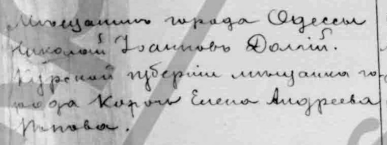 Мѣщанинъ города Одессы
Николай Іоанновъ Долгій.
Курской губерніи мѣщанка го-
рода Корочи Елена Андреева
Попова.